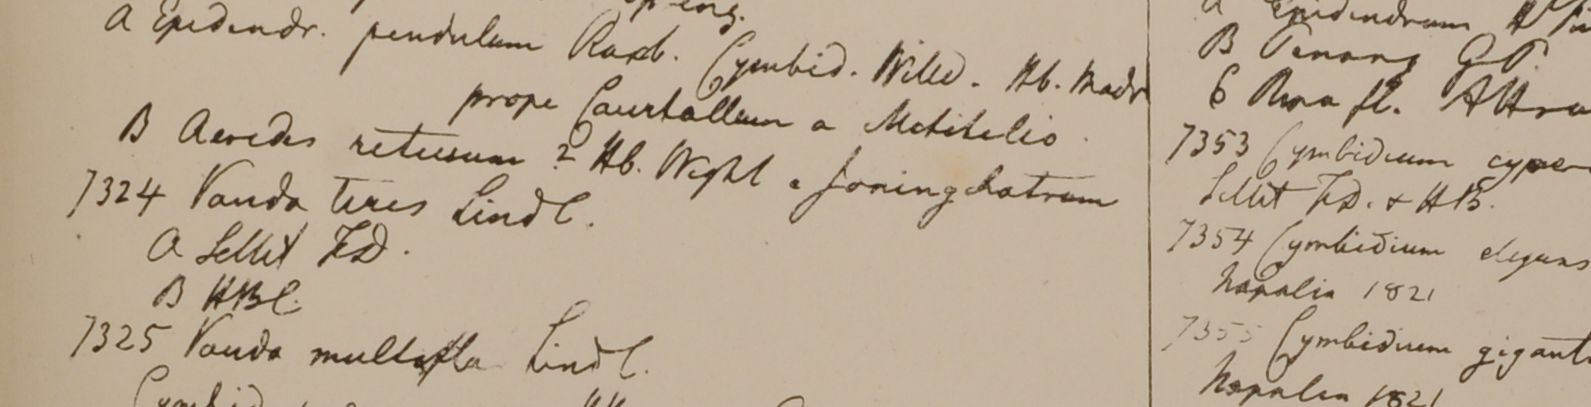 A Epidendr. pendulum Roxb. Cymbid. Willd. Hb. Madr
prope Courtallum a
B Aerides retusum ? Hb. Wight a
7324 Vanda teres Lindl.
A Sellet FD.
B HBC.
7325 Vanda multifla Lindl.
A Epidendrum
B Penang GP.
7353 Cymbidium cyper
Sillet FD. & HB.
7354 Cymbidium elegans
Napalia 1821
7355 Cymbidium gigant
Napalia 1821